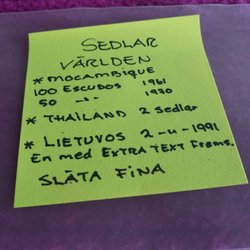 SEDLAR
VÄRLDEN
* MOCAMBIQUE
100 ESCUDOS 1961
50 -"- 1970
* THAILAND 2 Sedlar
* LIETUVOS 2 -u- 1991
En med EXTRA TEXT Frams.
SLÄTA FINA